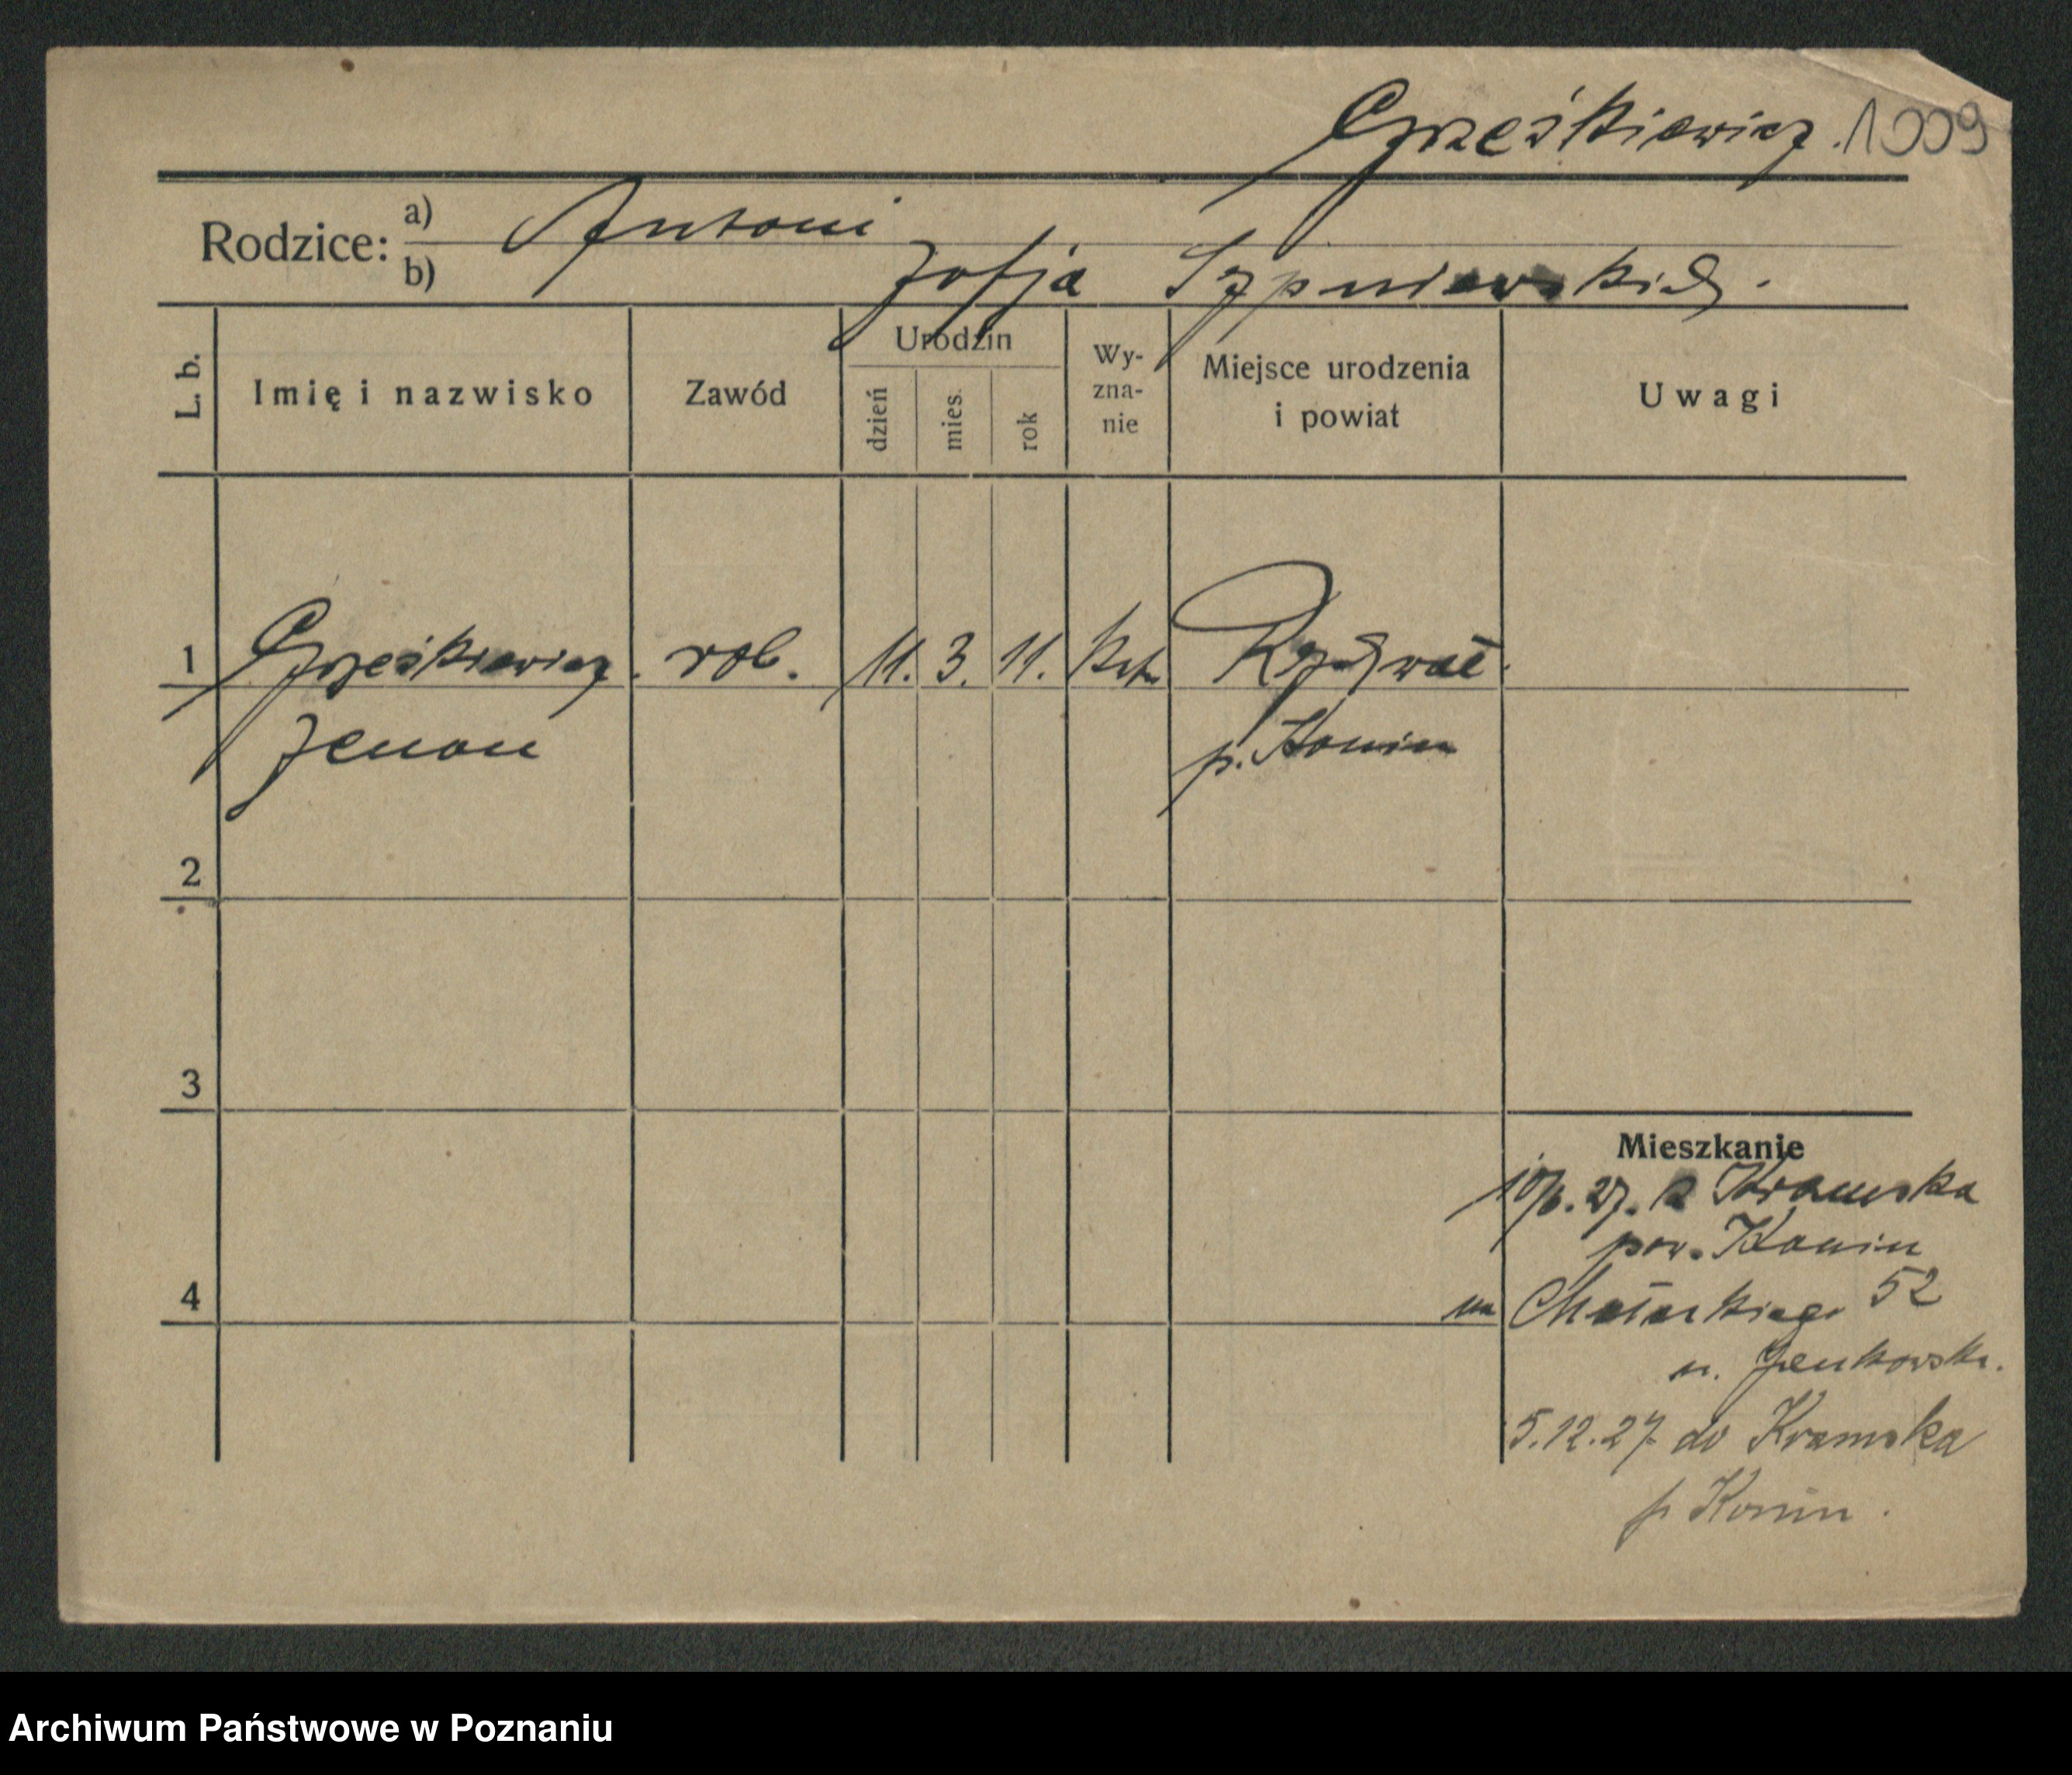 Grześkiewicz. 1009
Rodzice: a) Antoni
b) Zofja
L. b.
Imię i nazwisko
Zawód
Urodzin
dzień
mies.
rok
Wy-
zna-
nie
Miejsce urodzenia
i powiat
Uwagi
1 Grześkiewicz. rob. 11. 3. 11. kat.
Zenon p. Konin
2
3
4
Mieszkanie
27. z Kramska
pow. Konin
na 52
5.12.27 do Kramska
p Konin.
Archiwum Państwowe w Poznaniu